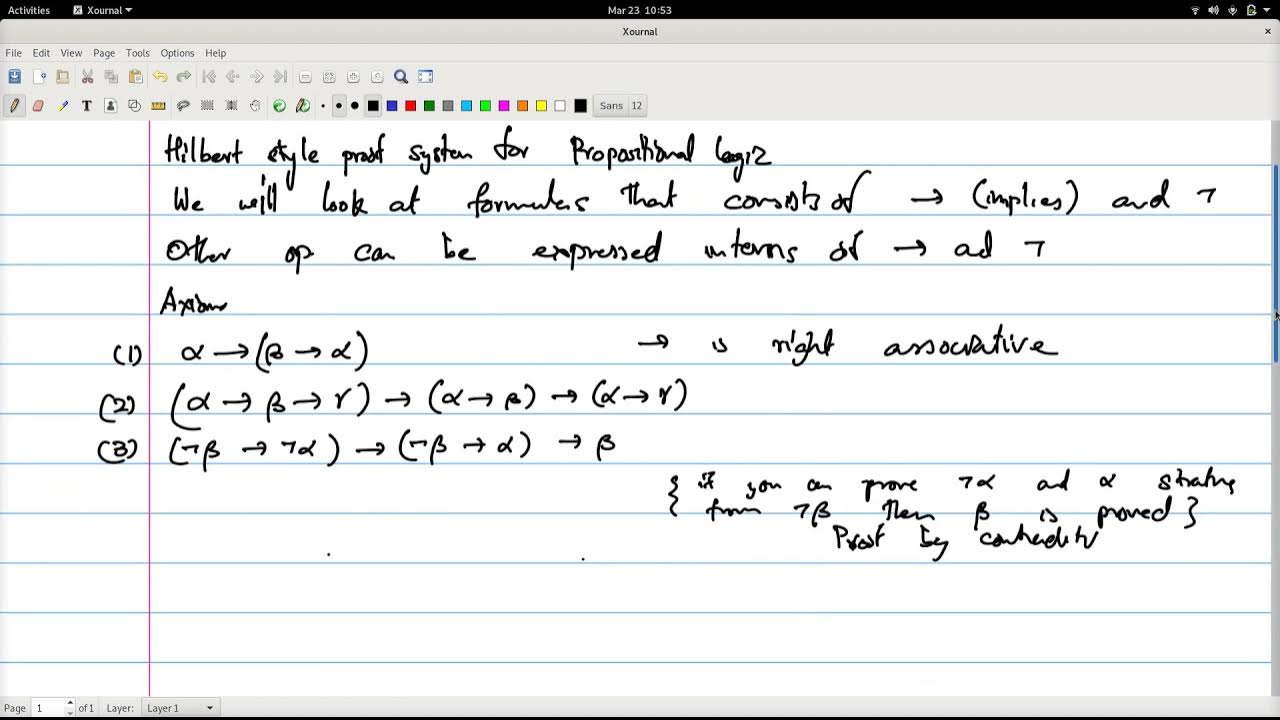 Activities Xournal Mar 23 10:53
Xournal
File Edit View Page Tools Options Help
Sans 12
Hilbert style proof system for Propositional logic
We will look at formulas that consists of → (implies) and ¬
Other op can be expressed interms of → ad ¬
Axioms
(1) α → (β → α) → is right associative
(2) (α → β → γ) → (α → β) → (α → γ)
(3) (¬β → ¬α) → (¬β → α) → β
{ if you can prove ¬α and α
from ¬β then β is proved }
Proof by
Page 1 of 1 Layer: Layer 1